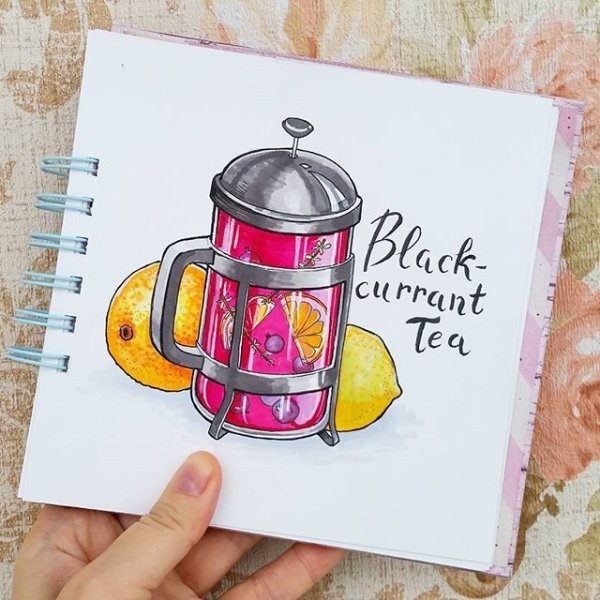 Black-
currant
Tea